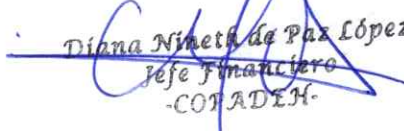 Diana Nineth de Paz López
Jefe Financiero
-COPADEH-